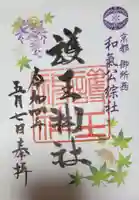 京都 御所西
和氣公綜社
護王神社
令和
五月七日奉拝